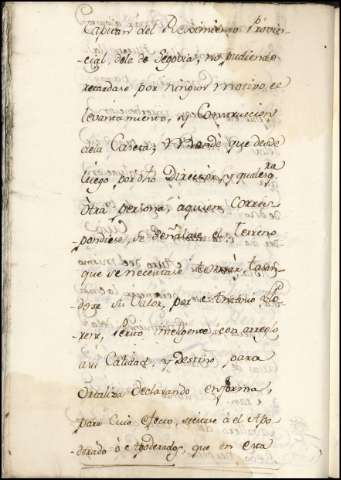 Capitan del Reximiento Provin-
-cial dela de Segovia, no pudiendo
retardarse por ningun motivo, el
levantamiento, y Construccion
dela Caseta; Mando que desde
luego por dho Director, y qualesqra
otra persona, aquien Corres-
-pondiese, se señalase el Terreno
que se necesitase tasan-
dose su Valor, por Antonio Llo-
rens, Perito inteligente con arreglo
asu Calidad, y destino, para
declarando enforma,
para Cuio efecto, se à el Apo-
-derado ò Apoderados, que en esta